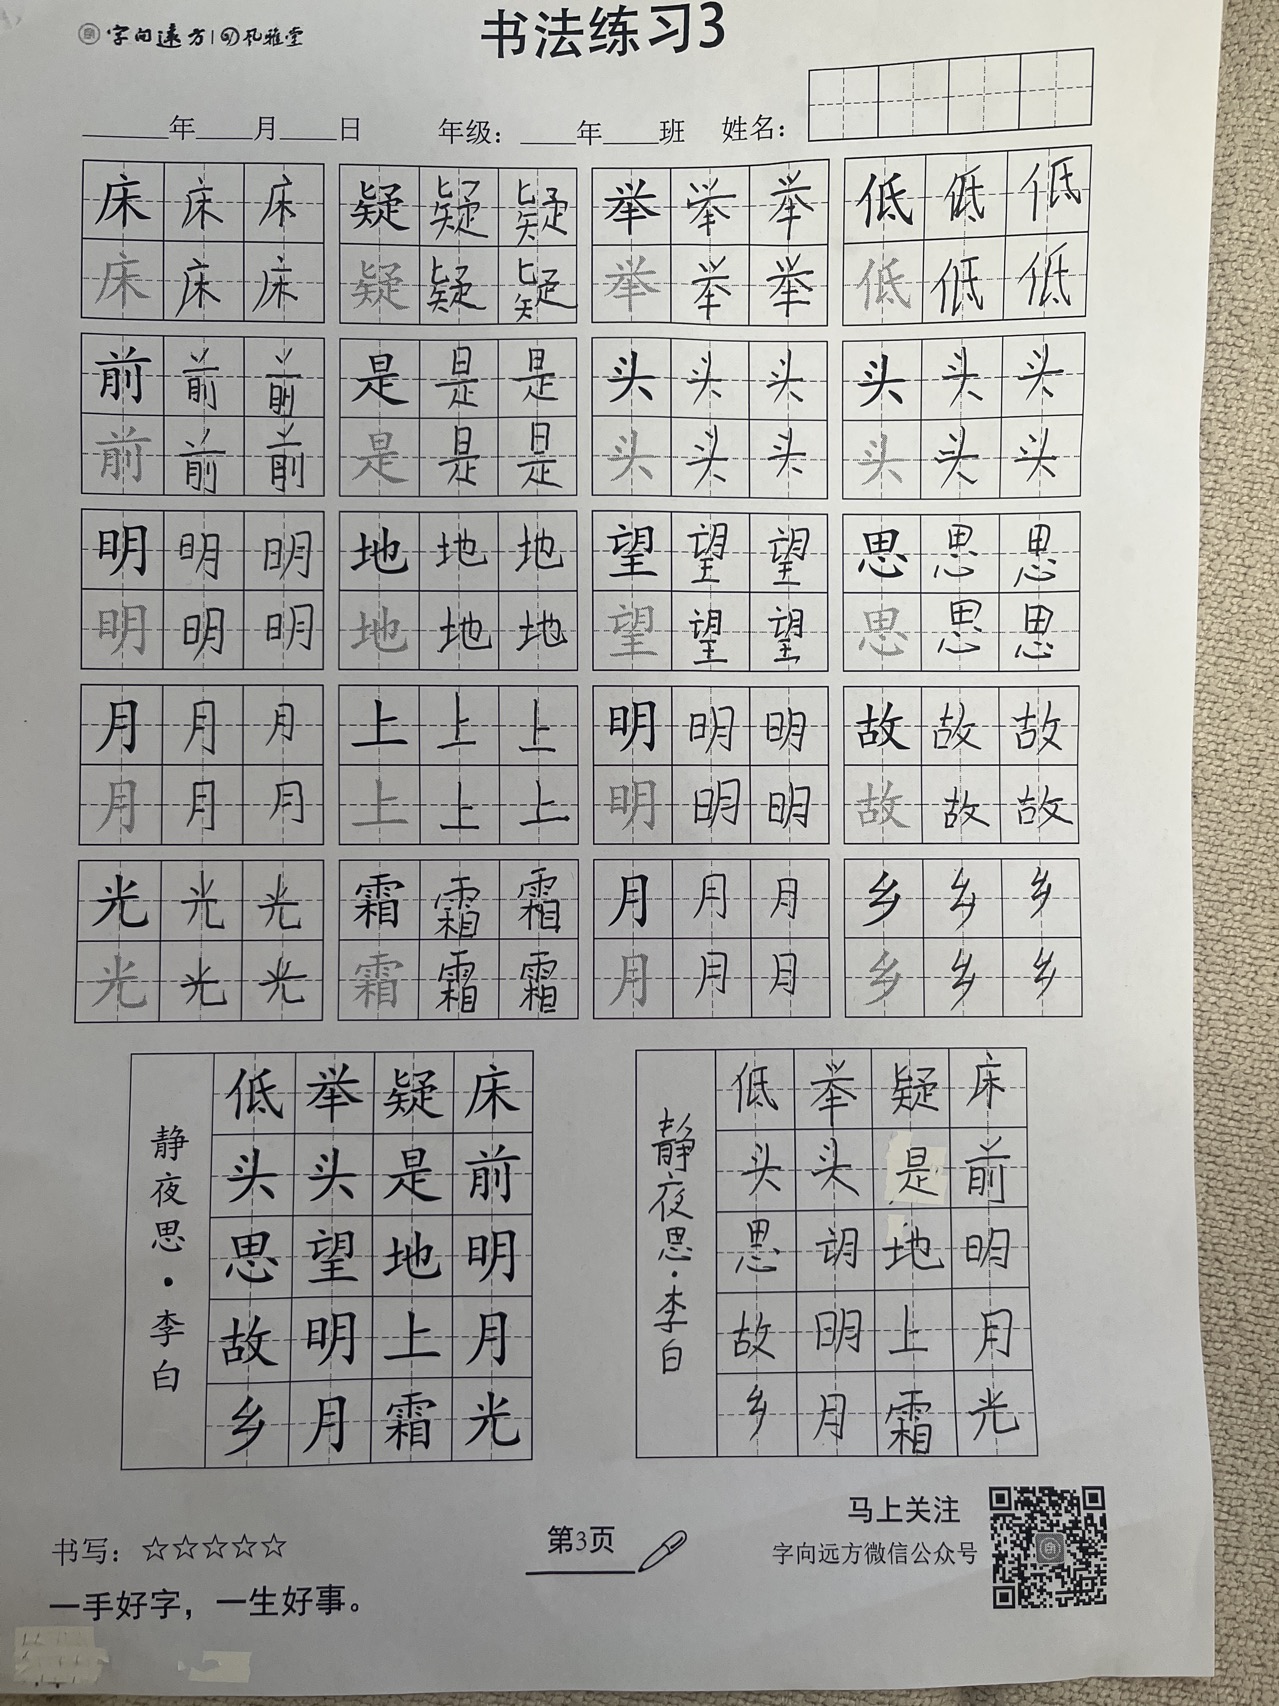 字向远方 孔雅堂
书法练习3
年 月 日 年级： 年 班 姓名：
床床床 疑疑疑 举举举 低低低
床床床 疑疑疑 举举举 低低低
前前前 是是是 头头头 头头头
前前前 是是是 头头头 头头头
明明明 地地地 望望望 思思思
明明明 地地地 望望望 思思思
月月月 上上上 明明明 故故故
月月月 上上上 明明明 故故故
光光光 霜霜霜 月月月 乡乡乡
光光光 霜霜霜 月月月 乡乡乡
床前明月光
疑是地上霜
举头望明月
低头思故乡
静夜思·李白
床前明月光
疑是地上霜
举头明月
低头思故乡
静夜思·李白
书写：☆☆☆☆☆
一手好字，一生好事。
第3页
马上关注
字向远方微信公众号